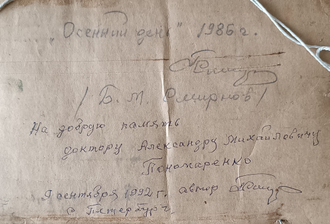 „Осенний день" 1986 г.
/ Б. М. Смирнов /
На добрую память
доктору Александру Михайловичу
Пономаренко
сентября 1992 г. автор